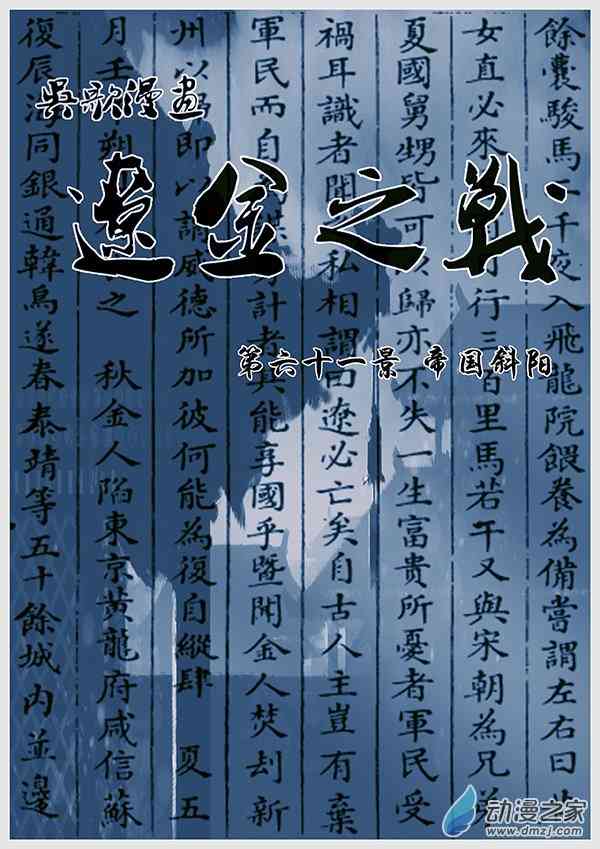 吳歌漫画
遼金之戰
第六十一景 帝国斜阳
餘囊駿馬二千夜入飛龍院餵養為備嘗謂左右曰
女直必來行三百里馬若干又與宋朝為兄
夏國舅甥皆可以歸亦不失一生富貴所憂者軍民受
禍耳識者聞私相謂曰遼必亡矣自古人主豈有棄
軍民而自為謀身計者其能享國乎暨聞金人焚刦新
州以即以謂威德所加彼何能為復自縱肆 夏五
月壬朔之 秋金人陷東京黃龍府咸信蘇
復辰海同銀通韓烏遂春泰靖等五十餘城內並邊
动漫之家
www.dmzj.com